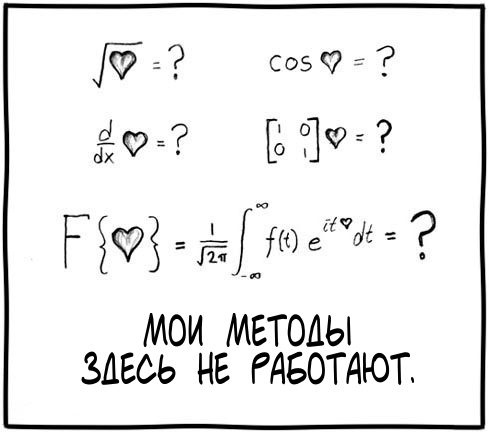 √♥ = ?
cos ♥ = ?
d/dx ♥ = ?
[1 0
0 1] ♥ = ?
F{♥} = 1/√2π ∫_{-∞}^{∞} f(t) e^{it♥} dt = ?
МОИ МЕТОДЫ
ЗДЕСЬ НЕ РАБОТАЮТ.